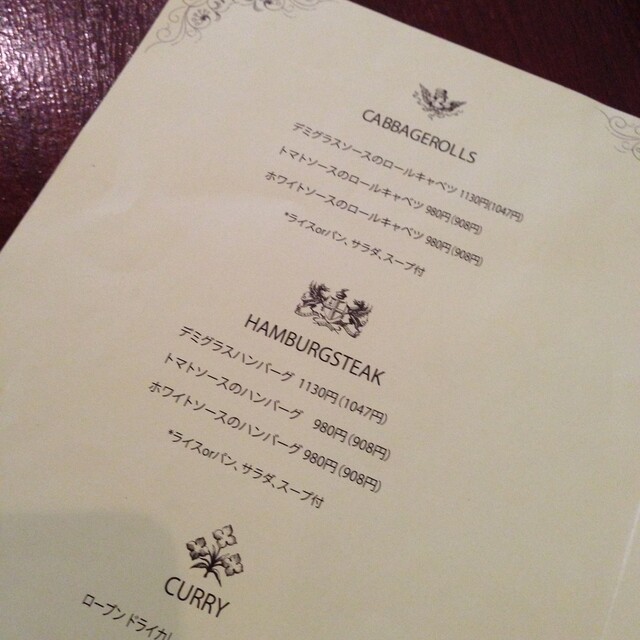 CABBAGEROLLS
デミグラスソースのロールキャベツ 1130円(1047円)
トマトソースのロールキャベツ 980円(908円)
ホワイトソースのロールキャベツ 980円(908円)
*ライスorパン、サラダ、スープ付
HAMBURGSTEAK
デミグラスハンバーグ 1130円(1047円)
トマトソースのハンバーグ 980円(908円)
ホワイトソースのハンバーグ 980円(908円)
*ライスorパン、サラダ、スープ付
CURRY
ローブンドライカレ